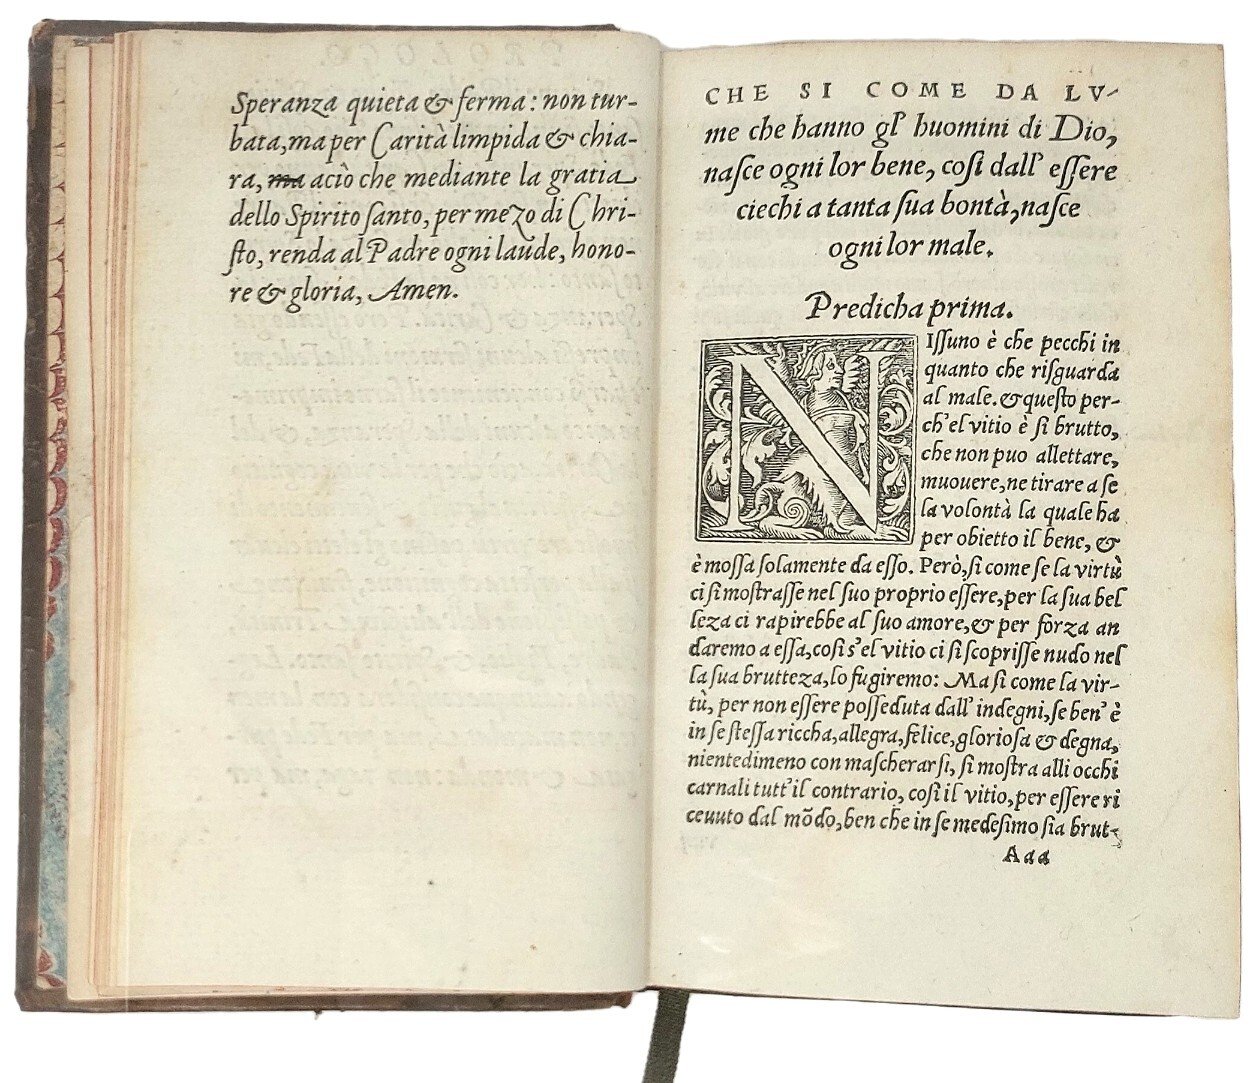 Speranza quieta & ferma: non tur-
bata, ma per Carità limpida & chia-
ra, ma acìo che mediante la gratia
dello Spirito ſanto, per mezo di Chri-
ſto, renda al Padre ogni laude, hono-
re & gloria, Amen.
CHE SI COME DA LV-
me che hanno gl' huomini di Dio,
naſce ogni lor bene, coſi dall' eſſere
ciechi a tanta ſua bontà, naſce
ogni lor male.
Predicha prima.
NIſſuno è che pecchi in
quanto che riſguarda
al male. & queſto per-
ch'el vitio è ſi brutto,
che non puo allettare,
muouere, ne tirare a ſe
la volontà la quale ha
per obietto il bene, &
è moſſa ſolamente da eſſo. Però, ſi come ſe la virtù
ci ſi moſtraſſe nel ſuo proprio eſſere, per la ſua bel
leza ci rapirebbe al ſuo amore, & per forza an
daremo a eſſa, coſi s'el vitio ci ſi ſcopriſſe nudo nel
la ſua brutteza, lo fugiremo: Ma ſi come la vir-
tù, per non eſſere poſſeduta dall' indegni, ſe ben' è
in ſe ſteſſa riccha, allegra, felice, glorioſa & degna,
nientedimeno con maſcherarſi, ſi moſtra alli occhi
carnali tutt'il contrario, coſi il vitio, per eſſere ri
ceuuto dal mōdo, ben che in ſe medeſimo ſia brut-
Aaa